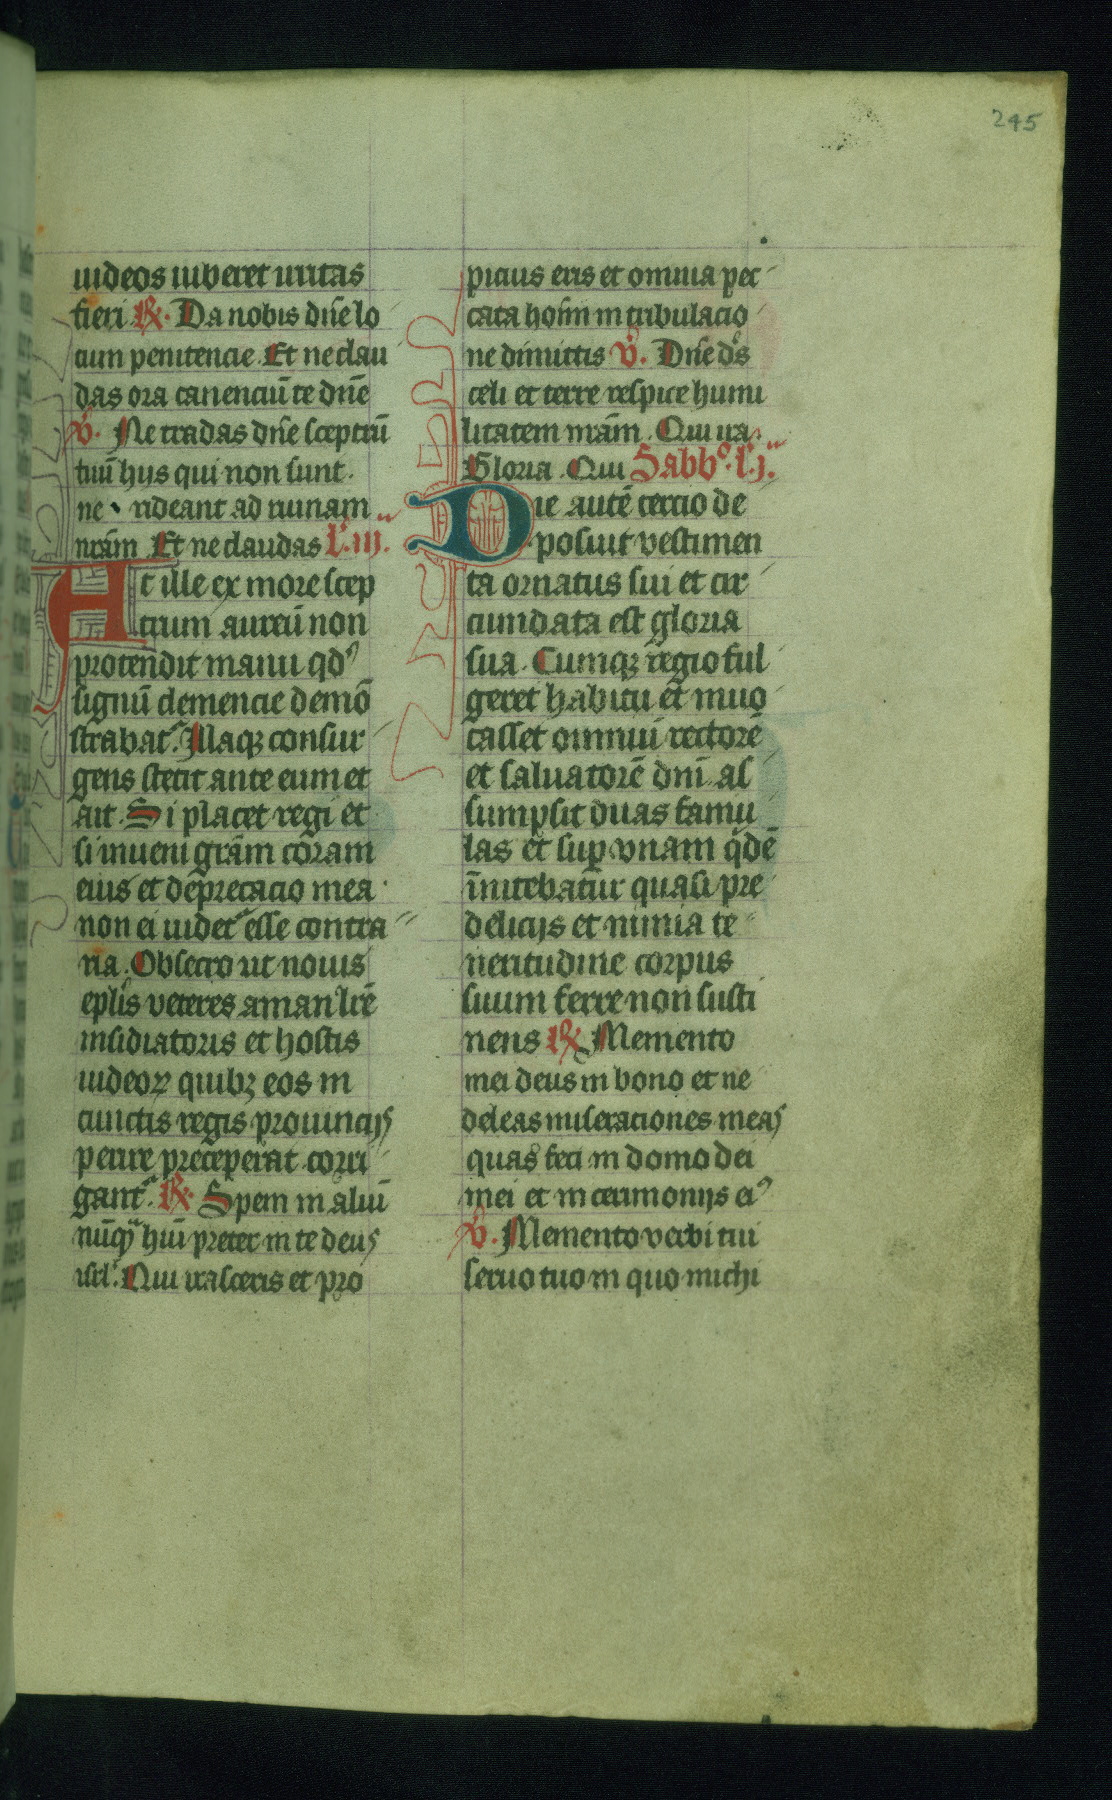 245
iudeos iuberet uiitas
fieri ℟. Da nobis dn̄e lo
cum penitencie Et ne clau
das ora canenciū te dn̄e
℣. Ne tradas dn̄e sceptrū
tuū hijs qui non sunt
ne rideant ad ruinam
nrām Et ne claudas L. iij.
At ille ex more scep
trum aureū non
protendit manu qd'
signū clemencie demō
strabat'. Illaq; consur
gens stetit ante eum et
ait. Si placet regi et
si inueni grām coram
eius et deprecacio mea
non ei uidet' esse contra
ria. Obsecro ut nouis
ep̄lis veteres aman lrē
insidiatoris et hostis
iudeoꝝ quibꝫ eos in
cunctis regis prouincijs
perire preceperat corri
gant'. ℟. Spem in aliū
nūqᷓ hūi preter in te deus
isrl'. Qui irasceris et pro
picius eris et omnia pec
cata hoīm in tribulacio
ne dimittis ℣. Dn̄e d's
celi et terre respice humi
litatem nrām. Qui ira.
Gloria. Qui Sabbo. L. j.
Die autē tercio de
posuit vestimen
ta ornatus sui et cir
cumdata est gloria
sua. Cumqꝫ regio ful
geret habitu et inuo
casset omniū rectorē
et saluatorē dnī as
sumpsit duas famu
las et sup̱ vnam qͥdē
īnitebatur quasi pre
delicijs et nimia te
neritudine corpus
suum ferre non susti
nens ℟. Memento
mei deus in bono et ne
deleas miseraciones meas
quas feci in domo dei
mei et in cerimonijs ei'
℣. Memento verbi tui
seruo tuo in quo michi